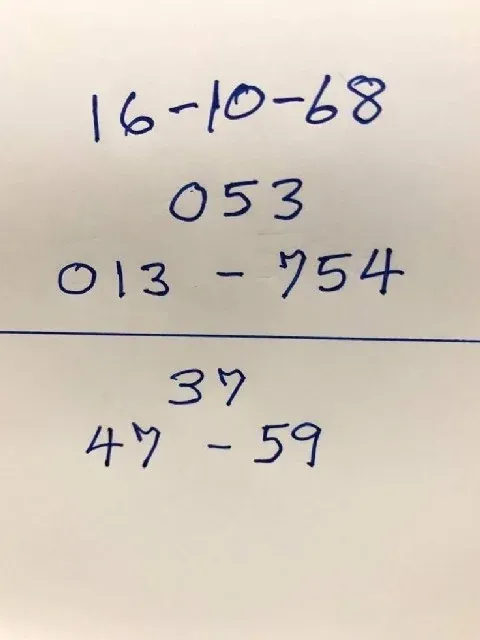 16-10-68
053
013 - 754
37
47 - 59